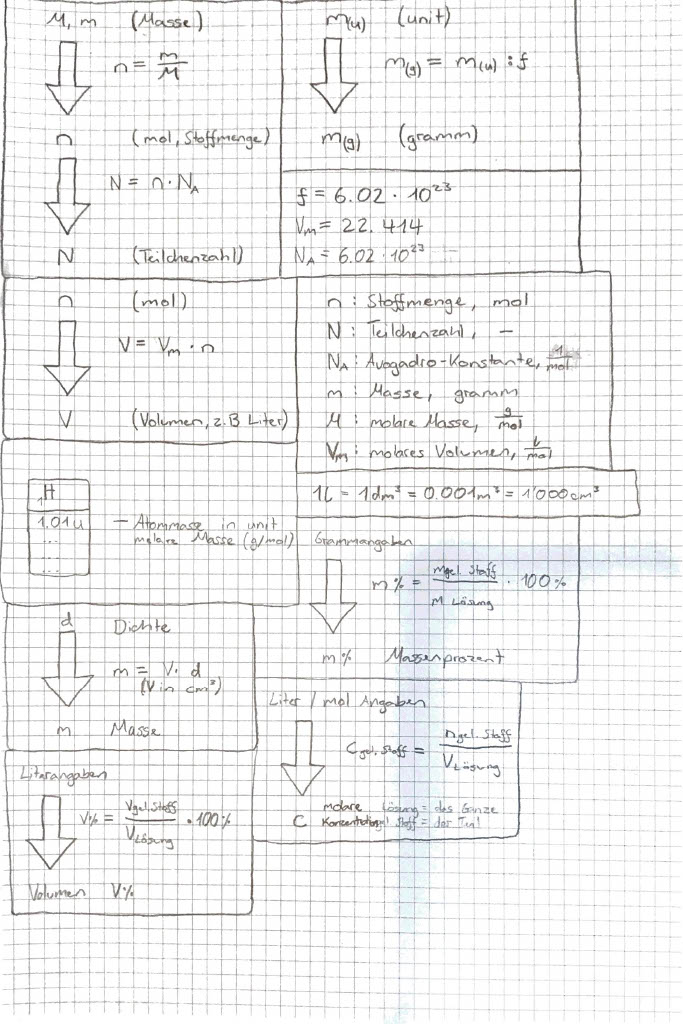 M, m (Masse)
n = m/M
n (mol, Stoffmenge)
N = n · N_A
N (Teilchenzahl)
m(u) (unit)
m(g) = m(u) : f
m(g) (gramm)
f = 6.02 · 10^23
V_m = 22.414
N_A = 6.02 · 10^23
n (mol)
V = V_m · n
V (Volumen, z.B Liter)
n : Stoffmenge, mol
N : Teilchenzahl, –
N_A : Avogadro-Konstante, 1/mol
m : Masse, gramm
M : molare Masse, g/mol
V_m : molares Volumen, l/mol
1L = 1dm³ = 0.001m³ = 1'000cm³
₁H
1.01u
...
...
— Atommasse in unit
molare Masse (g/mol)
Grammangaben
m% = m gel. Stoff / m Lösung · 100%
m% Massenprozent
d Dichte
m = V · d
(V in cm³)
m Masse
Liter / mol Angaben
C gel. Stoff = n gel. Stoff / V Lösung
C molare Lösung = das Ganze
Konzentration gel. Stoff = der Teil
Literangaben
V% = V gel. Stoff / V Lösung · 100%
Volumen V%